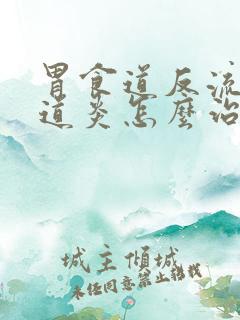 胃食道反流
道炎怎麼治
城主倾城
未经同意禁止转载